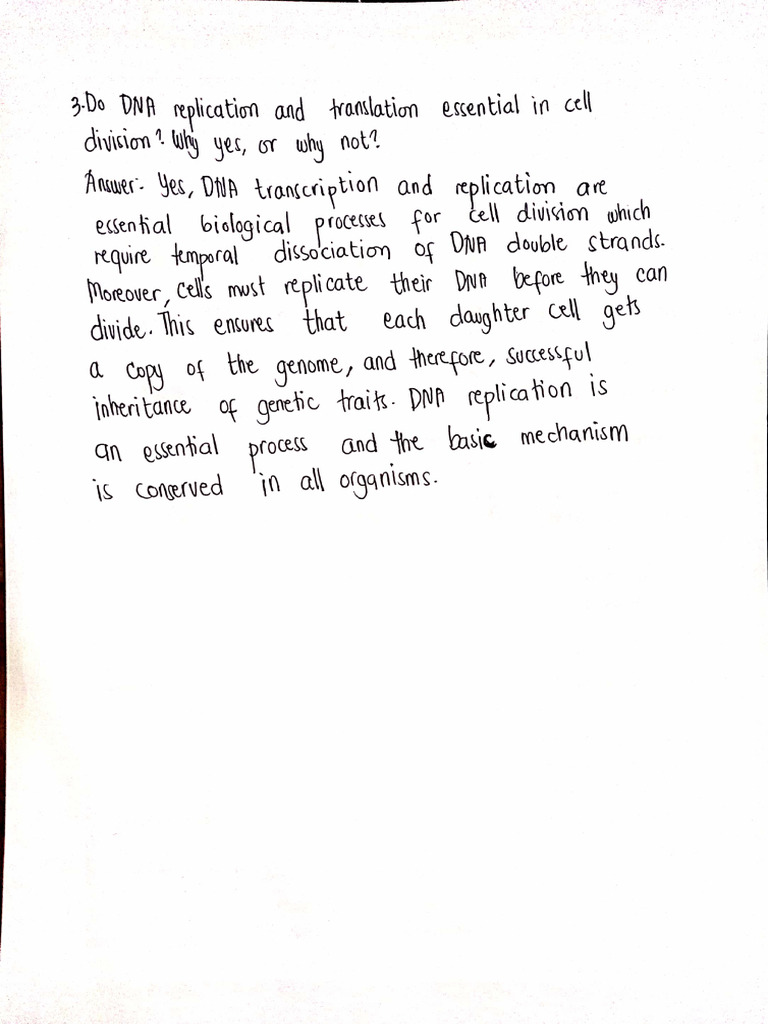 3. Do DNA replication and translation essential in cell
division? Why yes, or why not?
Answer:- Yes, DNA transcription and replication are
essential biological processes for cell division which
require temporal dissociation of DNA double strands.
Moreover, cells must replicate their DNA before they can
divide. This ensures that each daughter cell gets
a copy of the genome, and therefore, successful
inheritance of genetic traits. DNA replication is
an essential process and the basic mechanism
is conserved in all organisms.